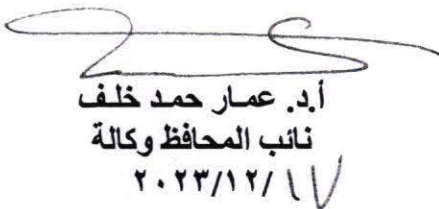 أ.د. عمار حمد خلف
نائب المحافظ وكالة
٢٠٢٣/١٢/١٧